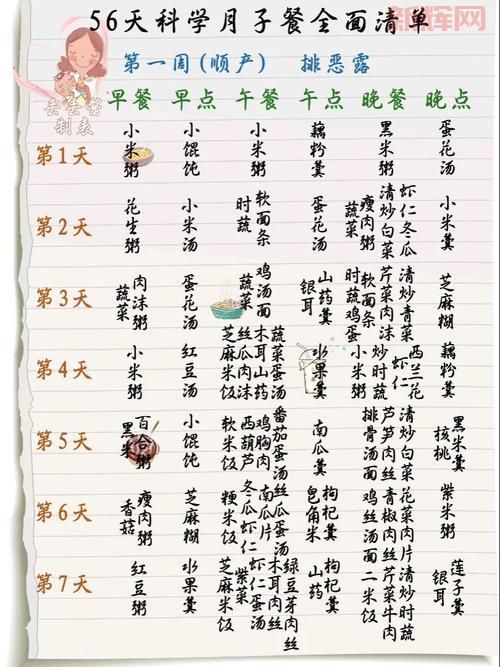 新辉网
56天科学月子餐全面清单
第一周(顺产) 排恶露
丢丢酱
制表
早餐 早点 午餐 午点 晚餐 晚点
第1天
小米粥
小馄饨
小米粥
藕粉羹
黑米粥
蛋花汤
第2天
花生粥
小米汤
时蔬
软面条
蛋花汤
蔬菜
瘦肉粥
清炒白菜
虾仁冬瓜
小米羹
第3天
蔬菜
肉沫粥
蛋花汤
蔬菜
鸡汤面
银耳
山药羹
时蔬鸡蛋
软面条
芹菜肉沫
清炒青菜
芝麻糊
第4天
小米粥
红豆汤
芝麻米饭
丝瓜肉沫
木耳山药
蔬菜蛋汤
水果羹
小米粥
炒时蔬
虾仁
西兰花
藕粉羹
第5天
黑米
百合粥
小馄饨
软米饭
西葫芦
鸡胸肉
番茄蛋汤
南瓜羹
排骨汤面
芦笋肉丝
清炒白菜
核桃
黑米羹
第6天
香菇
瘦肉粥
芝麻糊
粳米饭
冬瓜虾仁
南瓜片
丝瓜蛋汤
皂角米
枸杞羹
鸡丝汤面
青椒肉丝
花菜肉片
紫米粥
第7天
红豆粥
水果羹
芝麻米饭
紫菜
虾仁蛋汤
木耳肉丝
绿豆芽肉丝
山药
枸杞羹
二米饭
芹菜牛肉
清炒时蔬
银耳
莲子羹